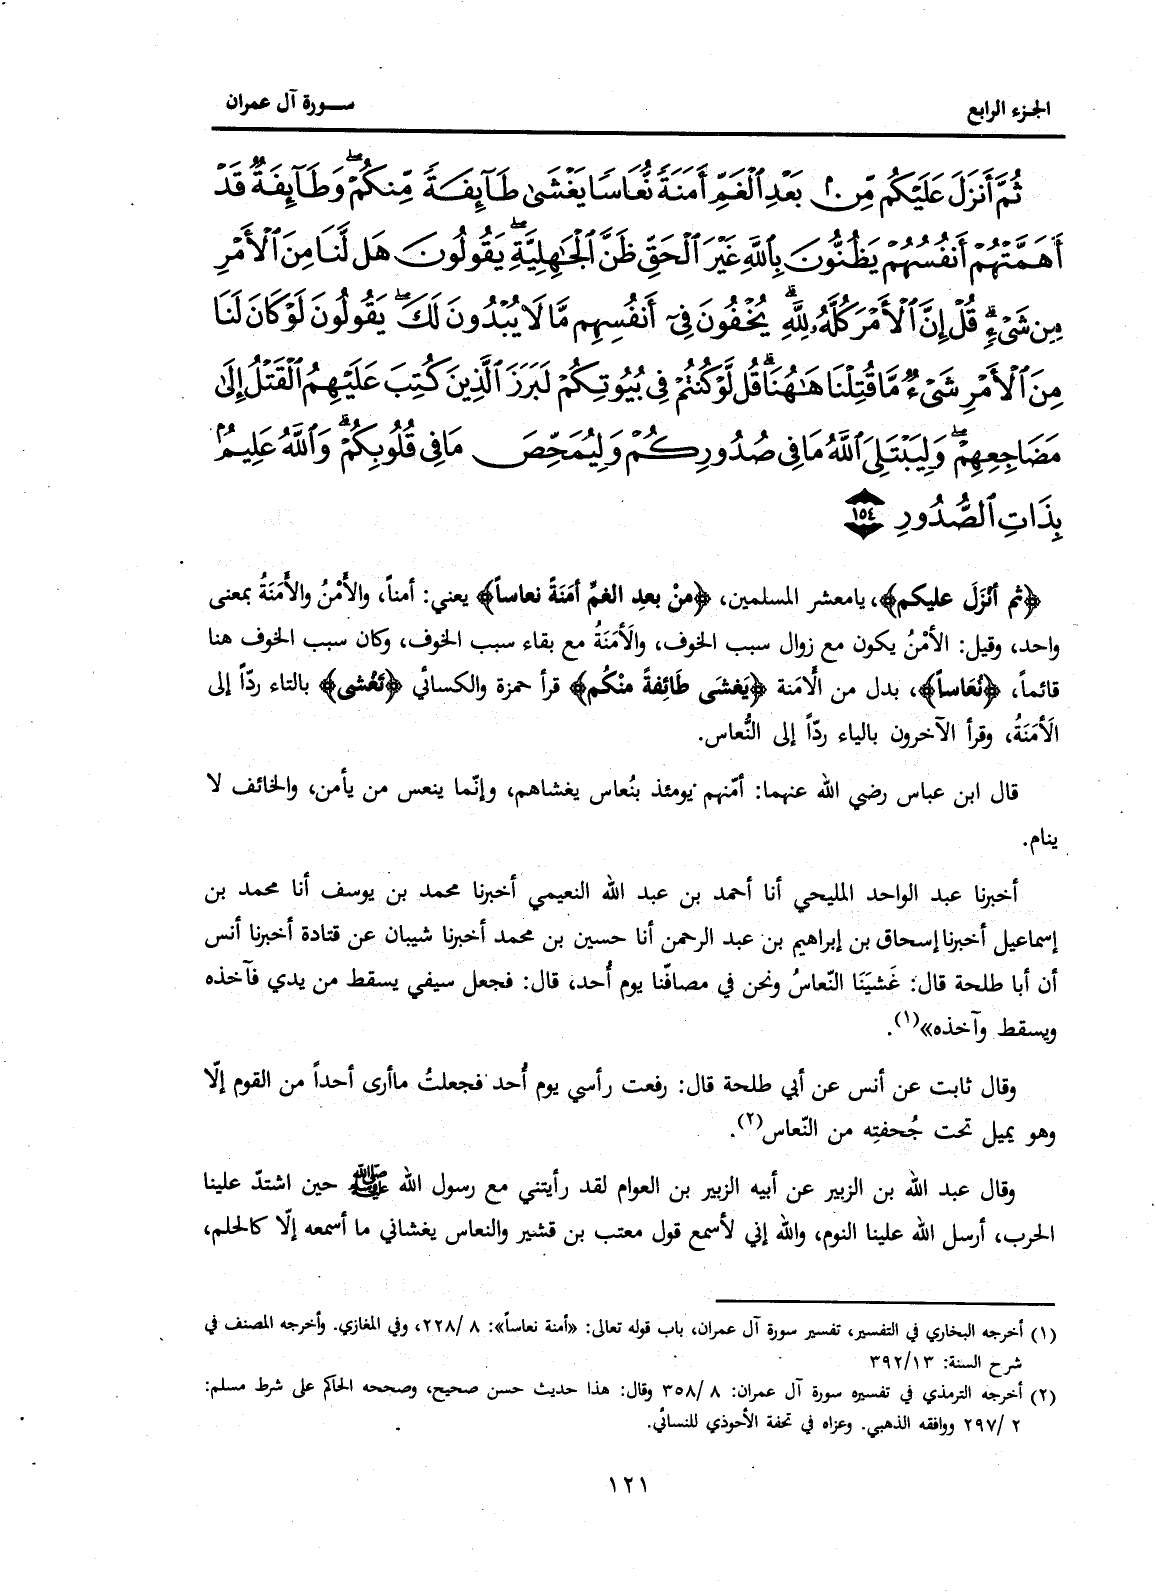 الجزء الرابع
سورة آل عمران
ثُمَّ أَنزَلَ عَلَيْكُم مِّنۢ بَعْدِ ٱلْغَمِّ أَمَنَةً نُّعَاسًا يَغْشَىٰ طَآئِفَةً مِّنكُمْ ۖ وَطَآئِفَةٌ قَدْ
أَهَمَّتْهُمْ أَنفُسُهُمْ يَظُنُّونَ بِٱللَّهِ غَيْرَ ٱلْحَقِّ ظَنَّ ٱلْجَٰهِلِيَّةِ ۖ يَقُولُونَ هَل لَّنَا مِنَ ٱلْأَمْرِ
مِن شَىْءٍ ۗ قُلْ إِنَّ ٱلْأَمْرَ كُلَّهُۥ لِلَّهِ ۗ يُخْفُونَ فِىٓ أَنفُسِهِم مَّا لَا يُبْدُونَ لَكَ ۖ يَقُولُونَ لَوْ كَانَ لَنَا
مِنَ ٱلْأَمْرِ شَىْءٌ مَّا قُتِلْنَا هَٰهُنَا ۗ قُل لَّوْ كُنتُمْ فِى بُيُوتِكُمْ لَبَرَزَ ٱلَّذِينَ كُتِبَ عَلَيْهِمُ ٱلْقَتْلُ إِلَىٰ
مَضَاجِعِهِمْ ۖ وَلِيَبْتَلِىَ ٱللَّهُ مَا فِى صُدُورِكُمْ وَلِيُمَحِّصَ مَا فِى قُلُوبِكُمْ ۗ وَٱللَّهُ عَلِيمٌۢ
بِذَاتِ ٱلصُّدُورِ ١٥٤
﴿ثم أنْزَلَ عليكم﴾، يامعشر المسلمين، ﴿منْ بعدِ الغمِّ أمَنَةً نعاساً﴾ يعني: أمناً، والأَمْنُ والأَمَنَةُ بمعنى
واحد، وقيل: الأمْنُ يكون مع زوال سبب الخوف، والَأمَنَةُ مع بقاء سبب الخوف، وكان سبب الخوف هنا
قائماً، ﴿نُعَاساً﴾، بدل من الَأمَنة ﴿يَغشَى طَائِفةً منْكُم﴾ قرأ حمزة والكسائي ﴿تَغْشى﴾ بالتاء ردّاً إلى
الَأمَنَةُ، وقرأ الآخرون بالياء ردّاً إلى النُّعاس.
قال ابن عباس رضي الله عنهما: أمّنهم يومئذ بنُعاس يغشاهم، وإنّما ينعس من يأمن، والخائف لا
ينام.
أخبرنا عبد الواحد المليحي أنا أحمد بن عبد الله النعيمي أخبرنا محمد بن يوسف أنا محمد بن
إسماعيل أخبرنا إسحاق بن إبراهيم بن عبد الرحمن أنا حسين بن محمد أخبرنا شيبان عن قتادة أخبرنا أنس
أن أبا طلحة قال: غَشيَنَا النّعاسُ ونحن في مصافّنا يوم أُحد، قال: فجعل سيفي يسقط من يدي فآخذه
ويسقط وآخذه»(١).
وقال ثابت عن أنس عن أبي طلحة قال: رفعت رأسي يوم أُحد فجعلتُ ماأرى أحداً من القوم إلّا
وهو يميل تحت جُحفتِه من النّعاس(٢).
وقال عبد الله بن الزبير عن أبيه الزبير بن العوام لقد رأيتني مع رسول الله ﷺ حين اشتدّ علينا
الحرب، أرسل الله علينا النوم، والله إني لأسمع قول معتب بن قشير والنعاس يغشاني ما أسمعه إلّا كالحلم،
(١) أخرجه البخاري في التفسير، تفسير سورة آل عمران، باب قوله تعالى: «أمنة نعاساً»: ٨ /٢٢٨، وفي المغازي. وأخرجه المصنف في
شرح السنة: ٣٩٢/١٣
(٢) أخرجه الترمذي في تفسيره سورة آل عمران: ٨ /٣٥٨ وقال: هذا حديث حسن صحيح، وصححه الحاكم على شرط مسلم:
٢ /٢٩٧ ووافقه الذهبي. وعزاه في تحفة الأحوذي للنسائي.
١٢١